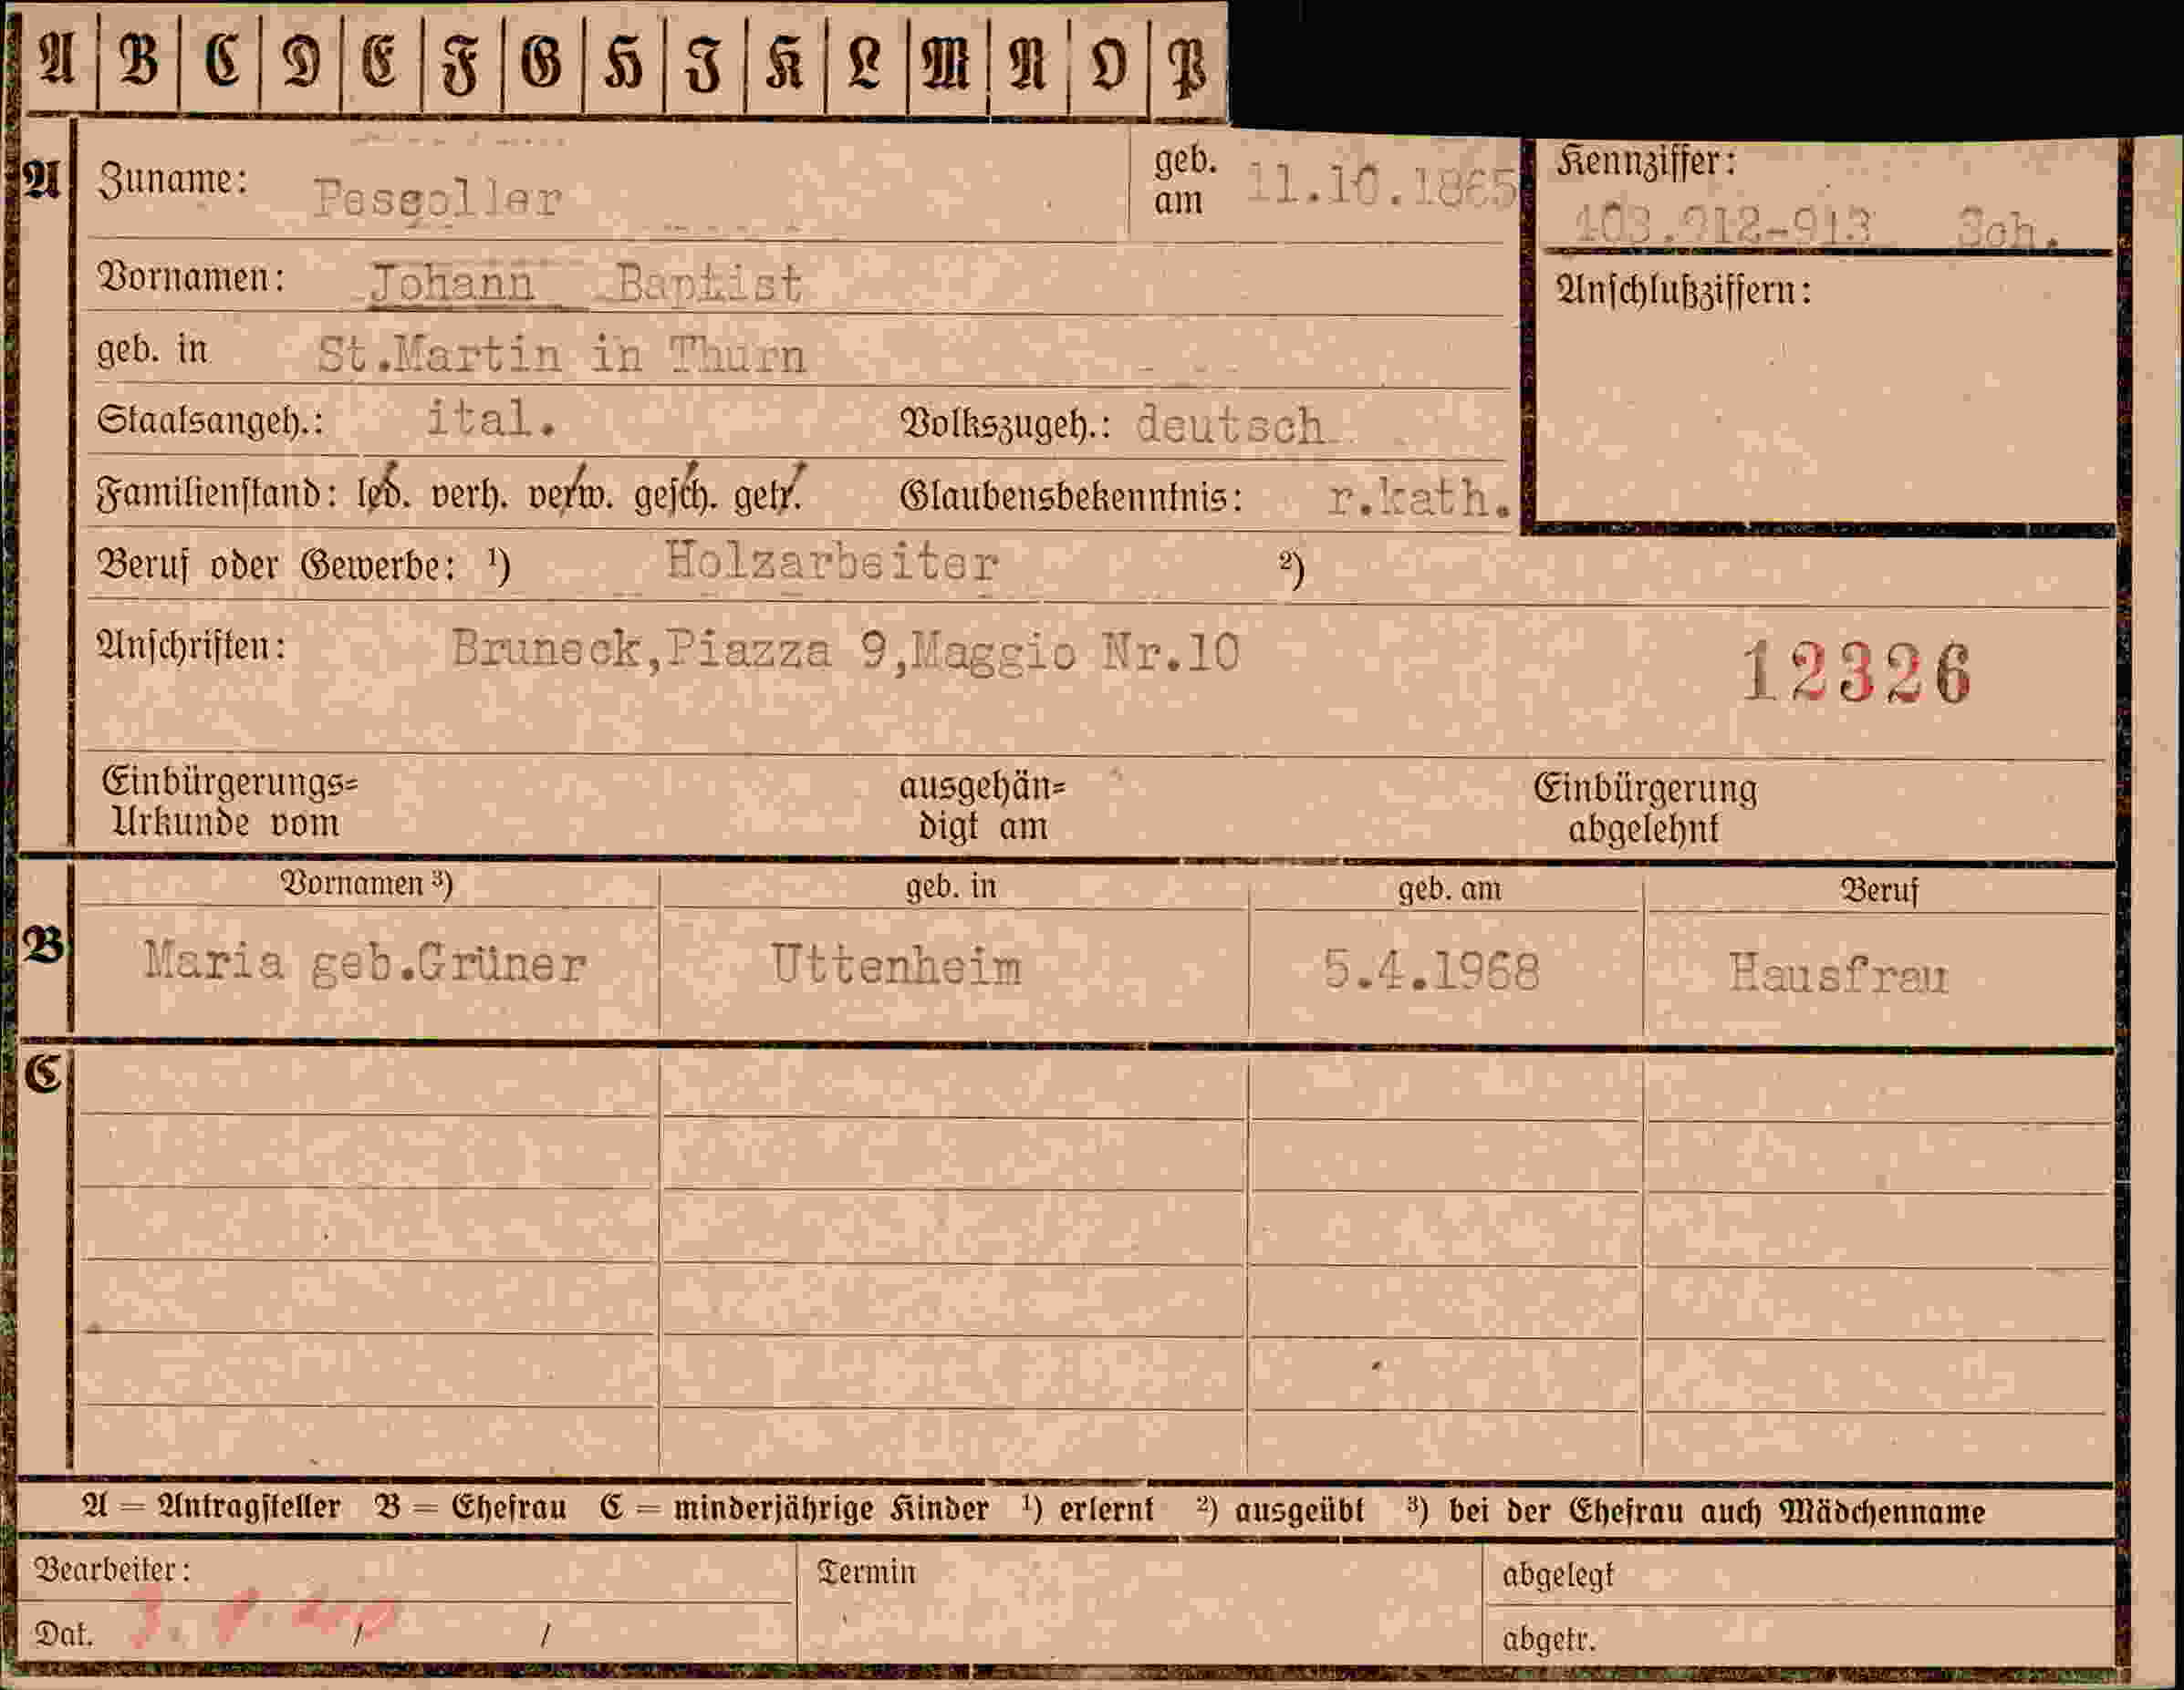 A B C D E F G H I K L M N O P
A Zuname: Pesgoller geb. am 11.10.1865 Kennziffer:
403.912-913 Sch.
Vornamen: Johann Baptist Anschlußziffern:
geb. in St.Martin in Thurn
Staatsangeh.: ital. Volkszugeh.: deutsch
Familienstand: led. verh. verw. gesch. getr. Glaubensbekenntnis: r.kath.
Beruf oder Gewerbe: ¹) Holzarbeiter ²)
Anschriften: Bruneck,Piazza 9,Maggio Nr.10 12326
Einbürgerungs= ausgehän= Einbürgerung
Urkunde vom digt am abgelehnt
Vornamen ³) geb. in geb. am Beruf
B Maria geb.Grüner Uttenheim 5.4.1968 Hausfrau
C
A = Antragsteller B = Ehefrau C = minderjährige Kinder ¹) erlernt ²) ausgeübt ³) bei der Ehefrau auch Mädchenname
Bearbeiter: Termin abgelegt
Dat. / / abgetr.